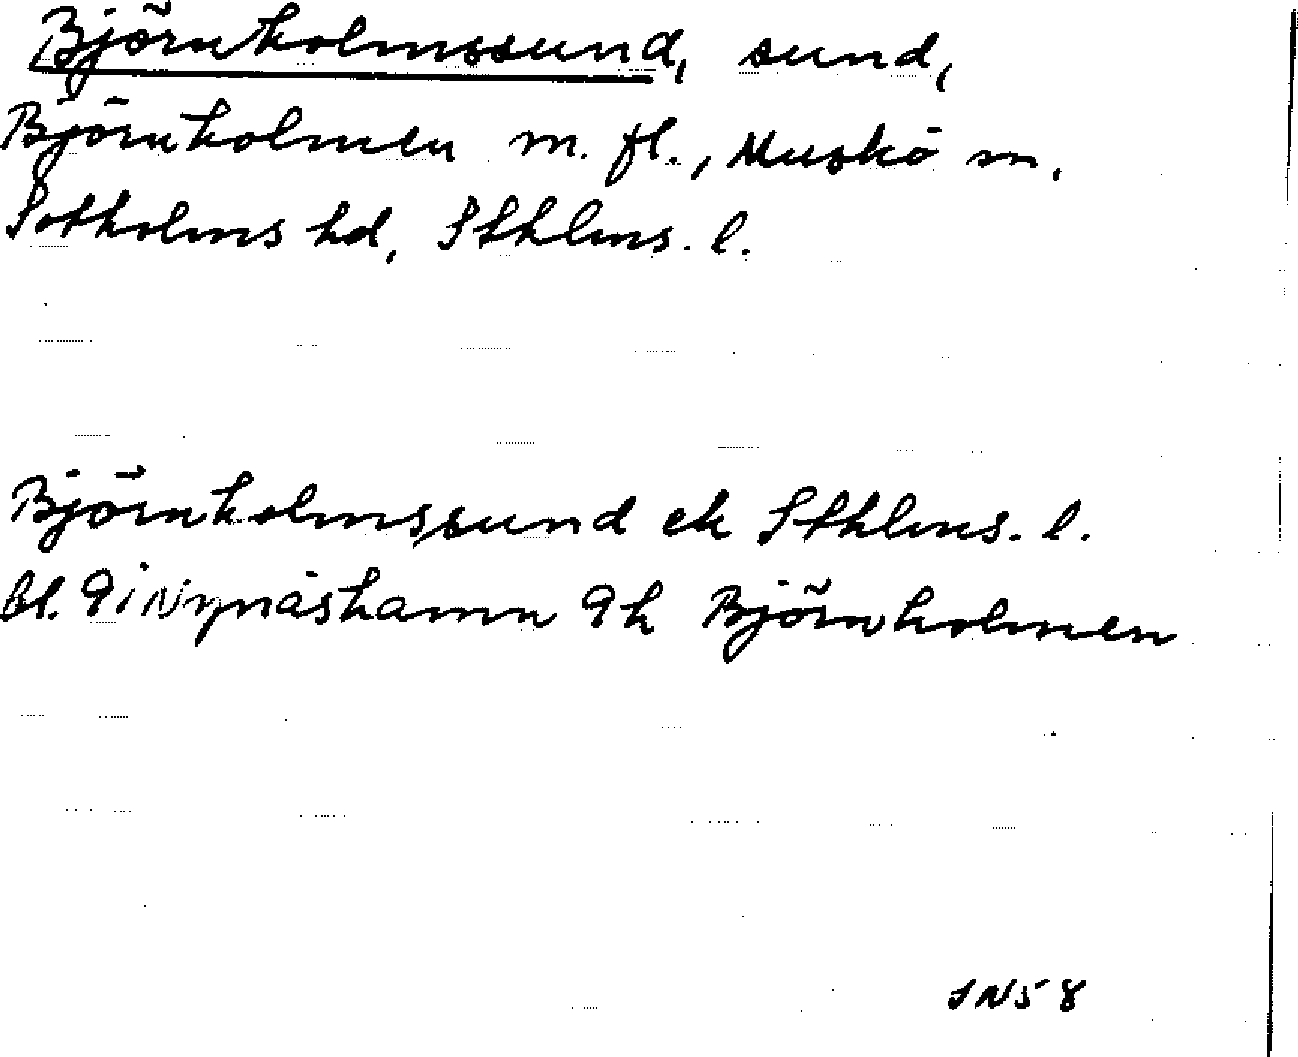 Björnholmssund, sund,
Björnholmen m. fl., Muskö sn,
Sotholms hd, Sthlms. l.
Björnholmssund ek Sthlms. l.
bl. 9i Nynäshamn 9h Björnholmen
SN58